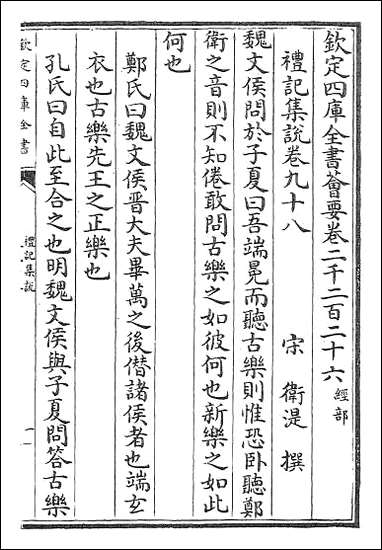 欽定四庫全書薈要卷二千二百二十六經部
禮記集說卷九十八
宋 衛湜 撰
魏文侯問於子夏曰吾端冕而聽古樂則惟恐卧聽鄭
衛之音則不知倦敢問古樂之如彼何也新樂之如此
何也
鄭氏曰魏文侯晉大夫畢萬之後僭諸侯者也端玄
衣也古樂先王之正樂也
孔氏曰自此至合之也明魏文侯與子夏問答古樂
欽定四庫全書
禮記集說
一